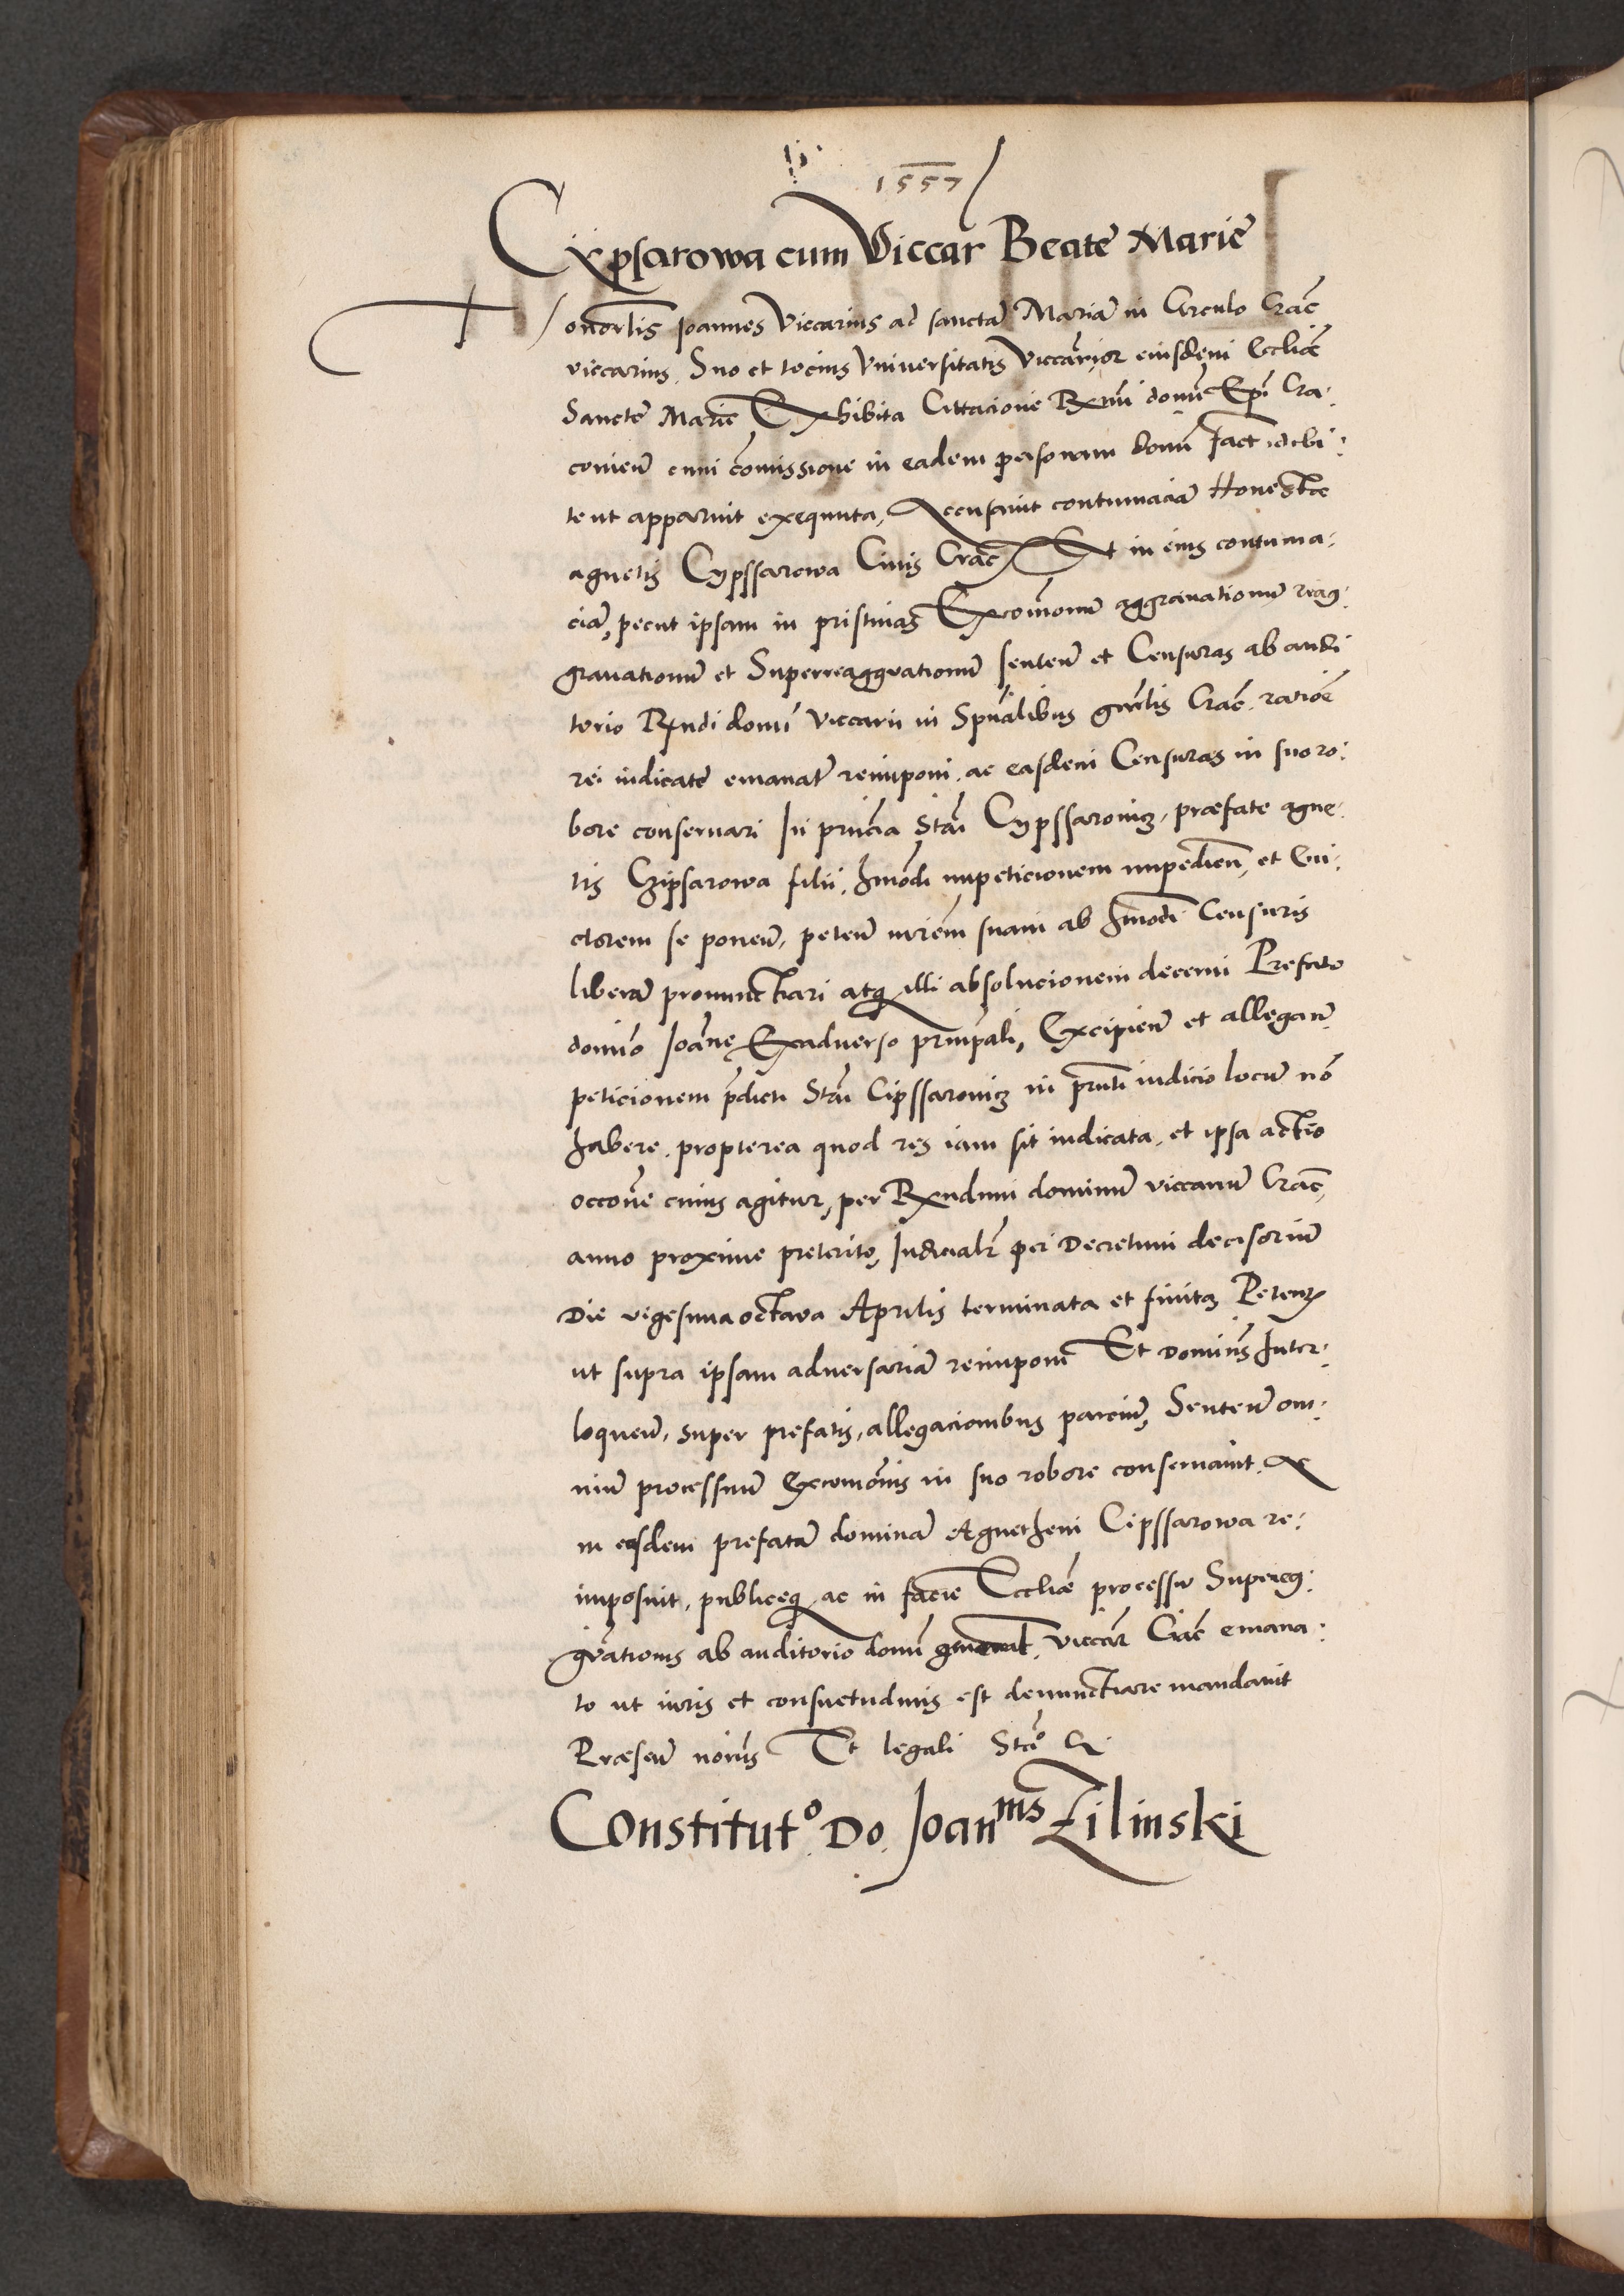 1557
Cypsarowa cum Viccar Beate Marie
Honorlis Joannes Viccarius ad sanctā Mariā in Circulo Crac̄
viccarius. Suo et tocius Vniversitatis viccarior eiusdem Eccliæ
Sancte Marie Exhibita Cittacione Rxmi domī Epī Cra:
covieñ cum comissione in eadem personam domī fact debi:
te ut apparuit exequuta, Accusavit contumaciā Honestæ
agnetis Cypssarowa Civis Crac̄ Et in eius contuma:
ciā, petiit ipsam in pristinas Excomōnum aggravationum reag:
gravationū et Superreaggravationū senteñ et Censuras ab audi
torio Rxndi domī Viccarii in Spūalibus gnrlis Crac̄. ratiōe
rei iudicate emanat reimponi. ac easdem Censuras in suo ro:
bore conservari In pñcia Stāi Cypssarowicz, præfate agne:
tis Czipsarowa filii, hmōdi impeticionem impedieñ, et Evi:
ctorem se poneñ, peteñ mrēm suam ab hmōdi Censuris
liberā pronunctiari atq illi absolucionem decerni Prefato
domiño Joāne Exadverso prīncpali, Excipieñ et allegañ
peticionem pdicti Stāi Cipssarowicz in pñti iudicio locū nō
habere. propterea quod res iam sit iudicata, et ipsa actio
occōne cuius agitur, per Rxndum dominū viccariū Crac̄,
anno proxime preterito, Iudicialr per Decretum decisoriū
Die vigesima octava Aprilis terminata et finita Petens
ut supra ipsam adversariā reimponi Et Dominus Inter:
loqueñ, super prefatis, allegacionibus parciū, Senteñ om:
niū processuū Excomōnis in suo robore conservavit. Ac
in easdem prefatā dominā Agnethem Cipssarowa re:
imposuit, publiceq ac in facie Eccliæ processu Supereg:
grātionis ab auditorio domī general. viccar Crac̄ emana:
to ut iuris et consuetudinis est denunctiare mandavit
Præseñ notiis Et legali Stāo &
Constitut⁰. Do. Joanⁿⁱˢ Zilinski